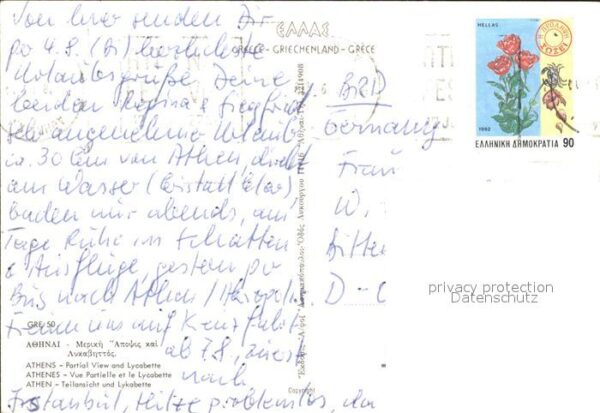 Von hier senden Dir
po 4.8. (Di) herzlichste
Urlaubsgrüße Deine
beiden Regina & Siegfried
Sehr angenehmer Urlaub
ca. 30 km von Athen direkt
am Wasser (Kristall klar)
baden nur abends, am
Tage Ruhe im Schatten
& Ausflüge, gestern per
Bus nach Athen / Akropolis.
Freuen uns auf Kreuzfahrt
ab 7.8., zuerst
nach
Istanbul, Hitze problemlos, da
ΕΛΛΑΣ
GREECE - GRIECHENLAND - GRECE
BRD
Germany
Frau
W.
Bitte
D-
HELLAS
Η ΠΡΟΛΗΨΗ
ΣΩΖΕΙ
1982
ΕΛΛΗΝΙΚΗ ΔΗΜΟΚΡΑΤΙΑ 90
privacy protection
Datenschutz
GRE/50
ΑΘΗΝΑΙ - Μερική Ἄποψις καί
Λυκαβηττός.
ATHENS - Partial View and Lycabette
ATHENES - Vue Partielle et le Lycabette
ATHEN - Teilansicht und Lykabette
Copyright